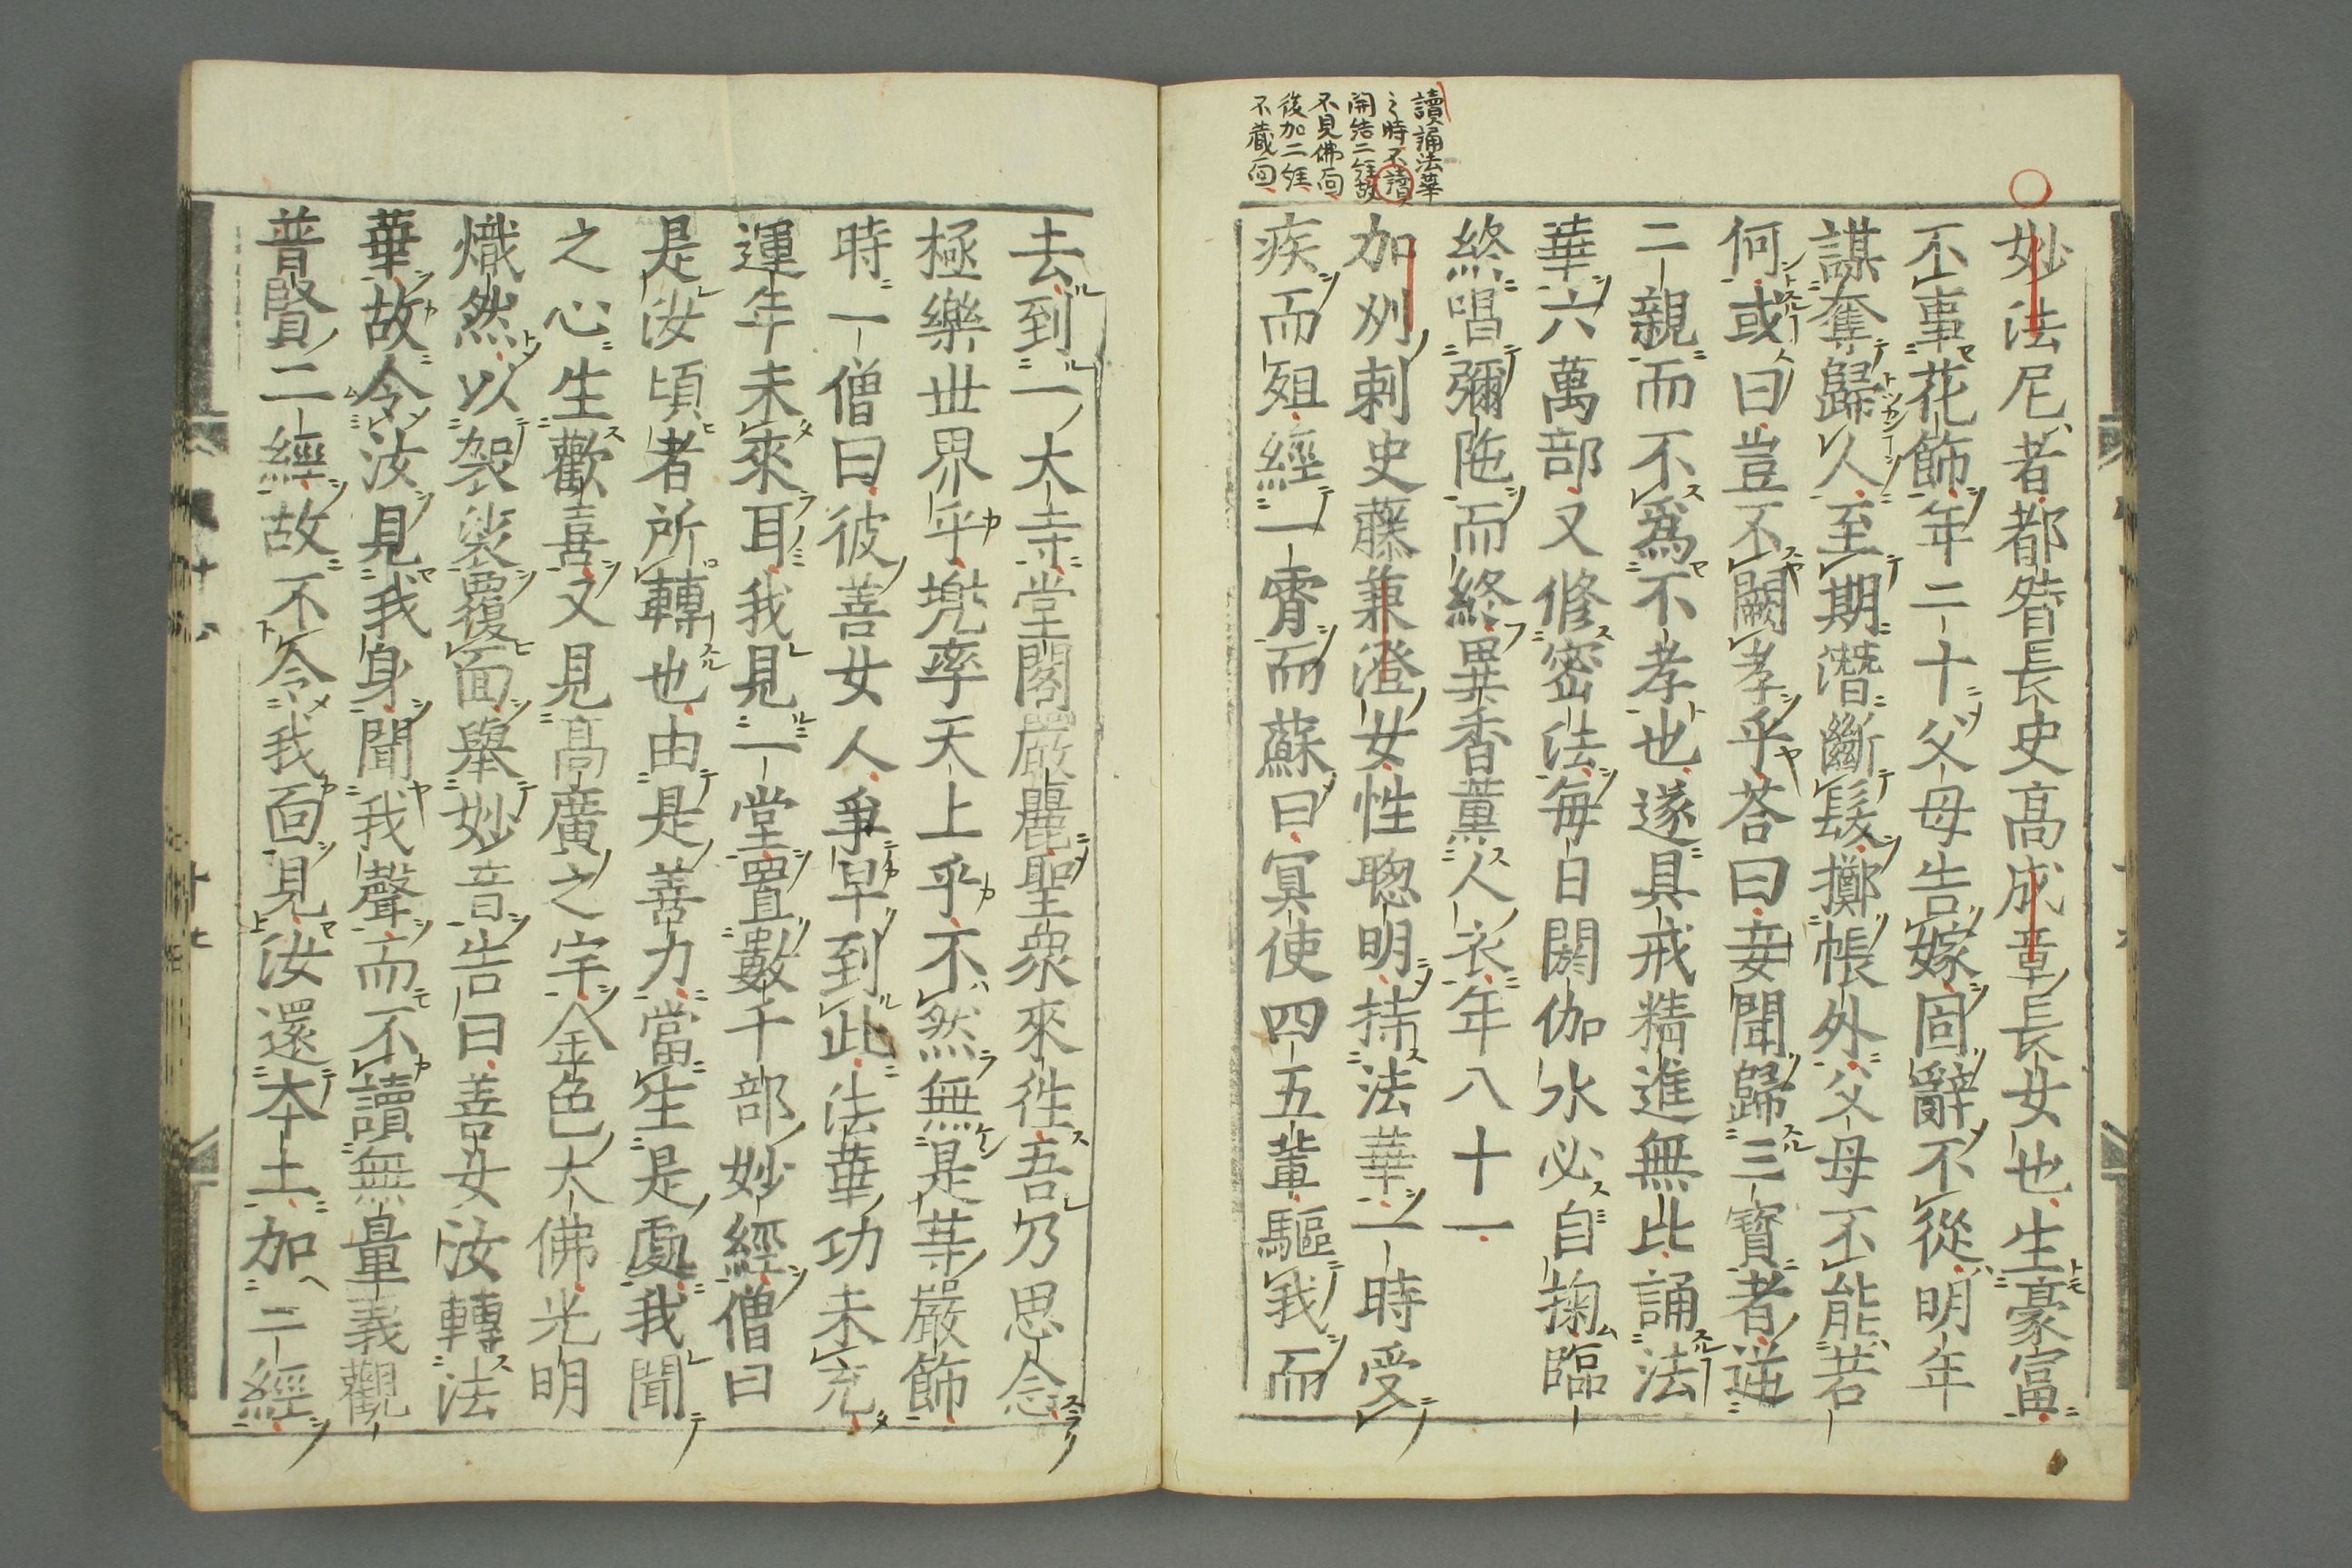 讀誦法華
之時不讀
開結二経故
不見佛面
後加二経
不蔵面
妙法尼者都督長史高成章長女也生豪富
不事花飾年二十父母告嫁固辭不從明年
謀奪歸人至期潛斷髮擲帳外父母不能若
何或曰豈不闕孝乎荅曰妾聞歸三寶者逆
二親而不爲不孝也遂具戒精進無比誦法
華六萬部又修密法每日閼伽水必自掬臨
終唱彌陁而終異香薰人衣年八十一
加州刺史藤兼澄女性聰明持法華一時受
疾而殂經一霄而蘇曰冥使四五輩驅我而
去到一大寺堂閣嚴麗聖衆來徃吾乃思念
極樂世界乎兠率天上乎不然無是等嚴飾
時一僧曰彼善女人爭早到此法華功未充
運年未來耳我見一堂置數千部妙經僧曰
是汝頃者所轉也由是善力當生是處我聞
之心生歡喜又見高廣之宇金色大佛光明
熾然以袈裟覆面舉妙音告曰善女汝轉法
華故令汝見我身聞我聲而不讀無量義觀
普賢二經故不令我面見汝還本土加二經